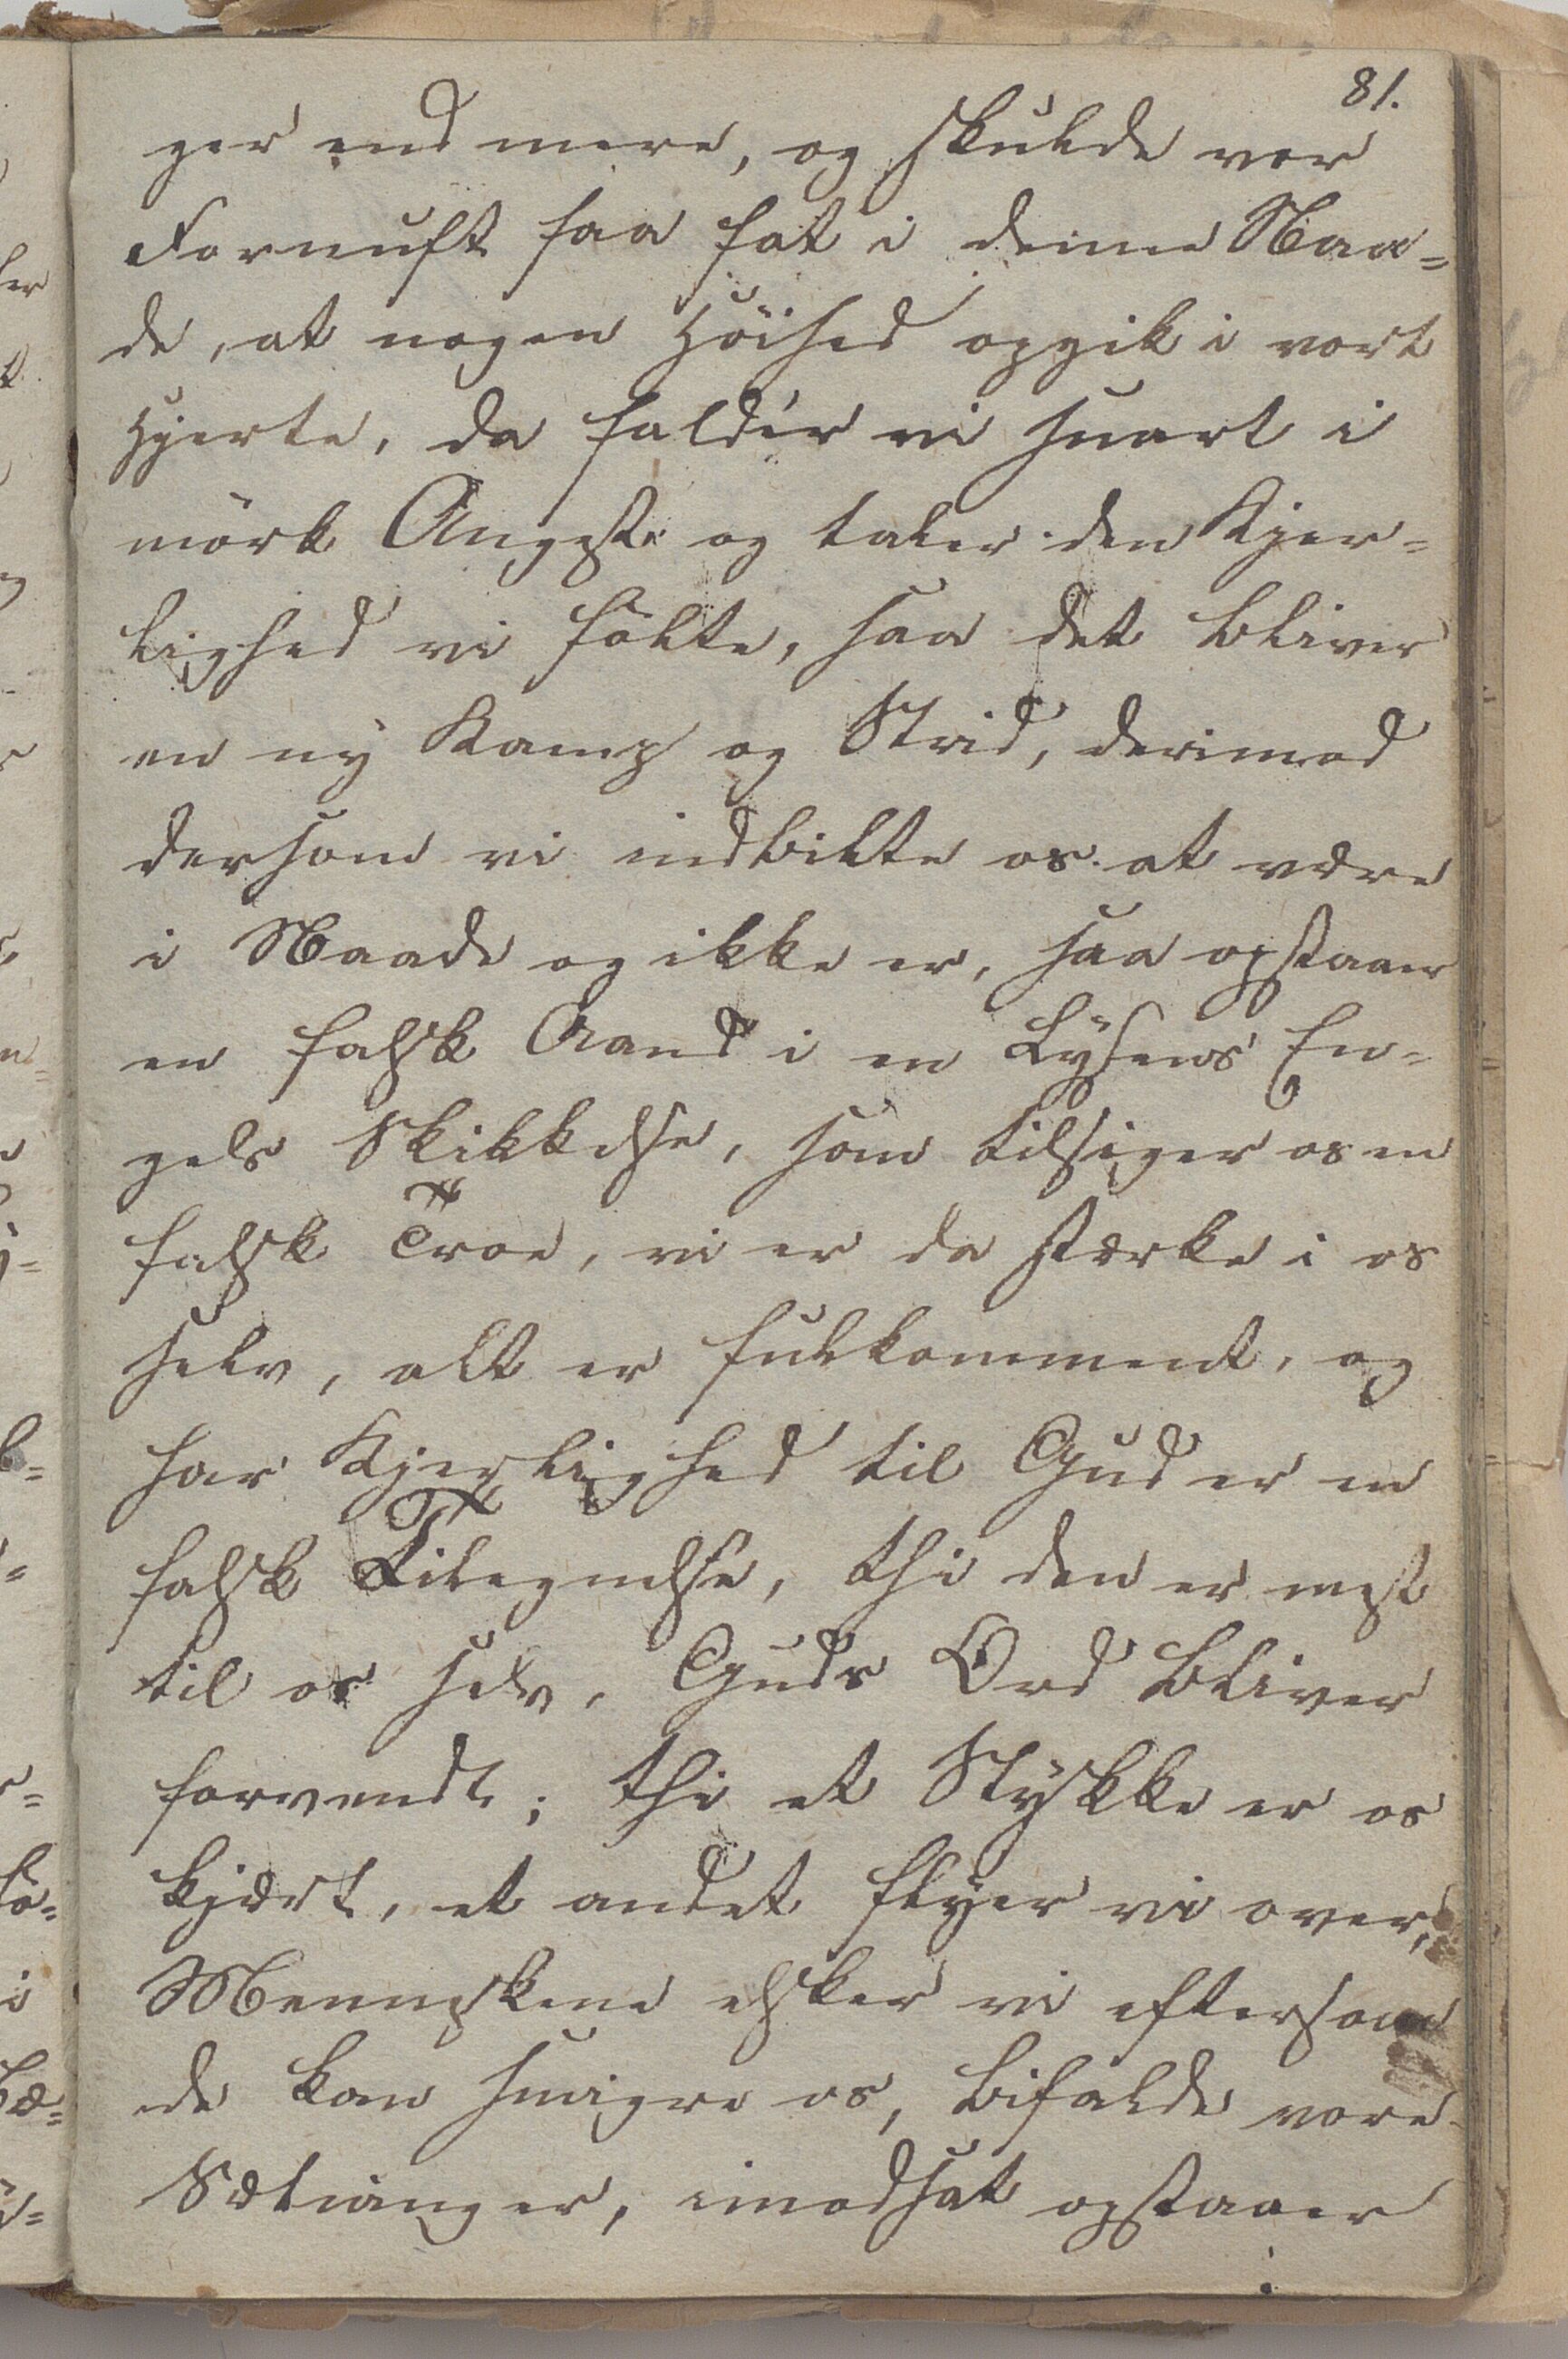 81.
ger end mere, og skulde vor
Fornuft faa fat i denne Naa=
de, at nogen Höihed opgik i vort
Hjerte, da falder vi snart i
mörk Angest og taber den Kjer=
lighed vi fölte, saa det bliver
en ny Kamp og Strid, derimod
dersom vi indbilte os at være
i Naade og ikke er, saa opstaaer
en falsk Aand i en Lysens En=
gels Skikkelse, som tilsiger os en
falsk Troe, vi er da stærke i os
selv, alt er fulkomment, og
har Kjerlighed til Gud er en
falsk Tilegnelse, thi den er mest
til os selv, Guds Ord bliver
forvendt; thi et Stykke er os
kjært, et andet flyer vi over,
Menneskene elsker vi eftersom
de kan smigre os, bifalde vore
Sætninger, imodsat opstaaer